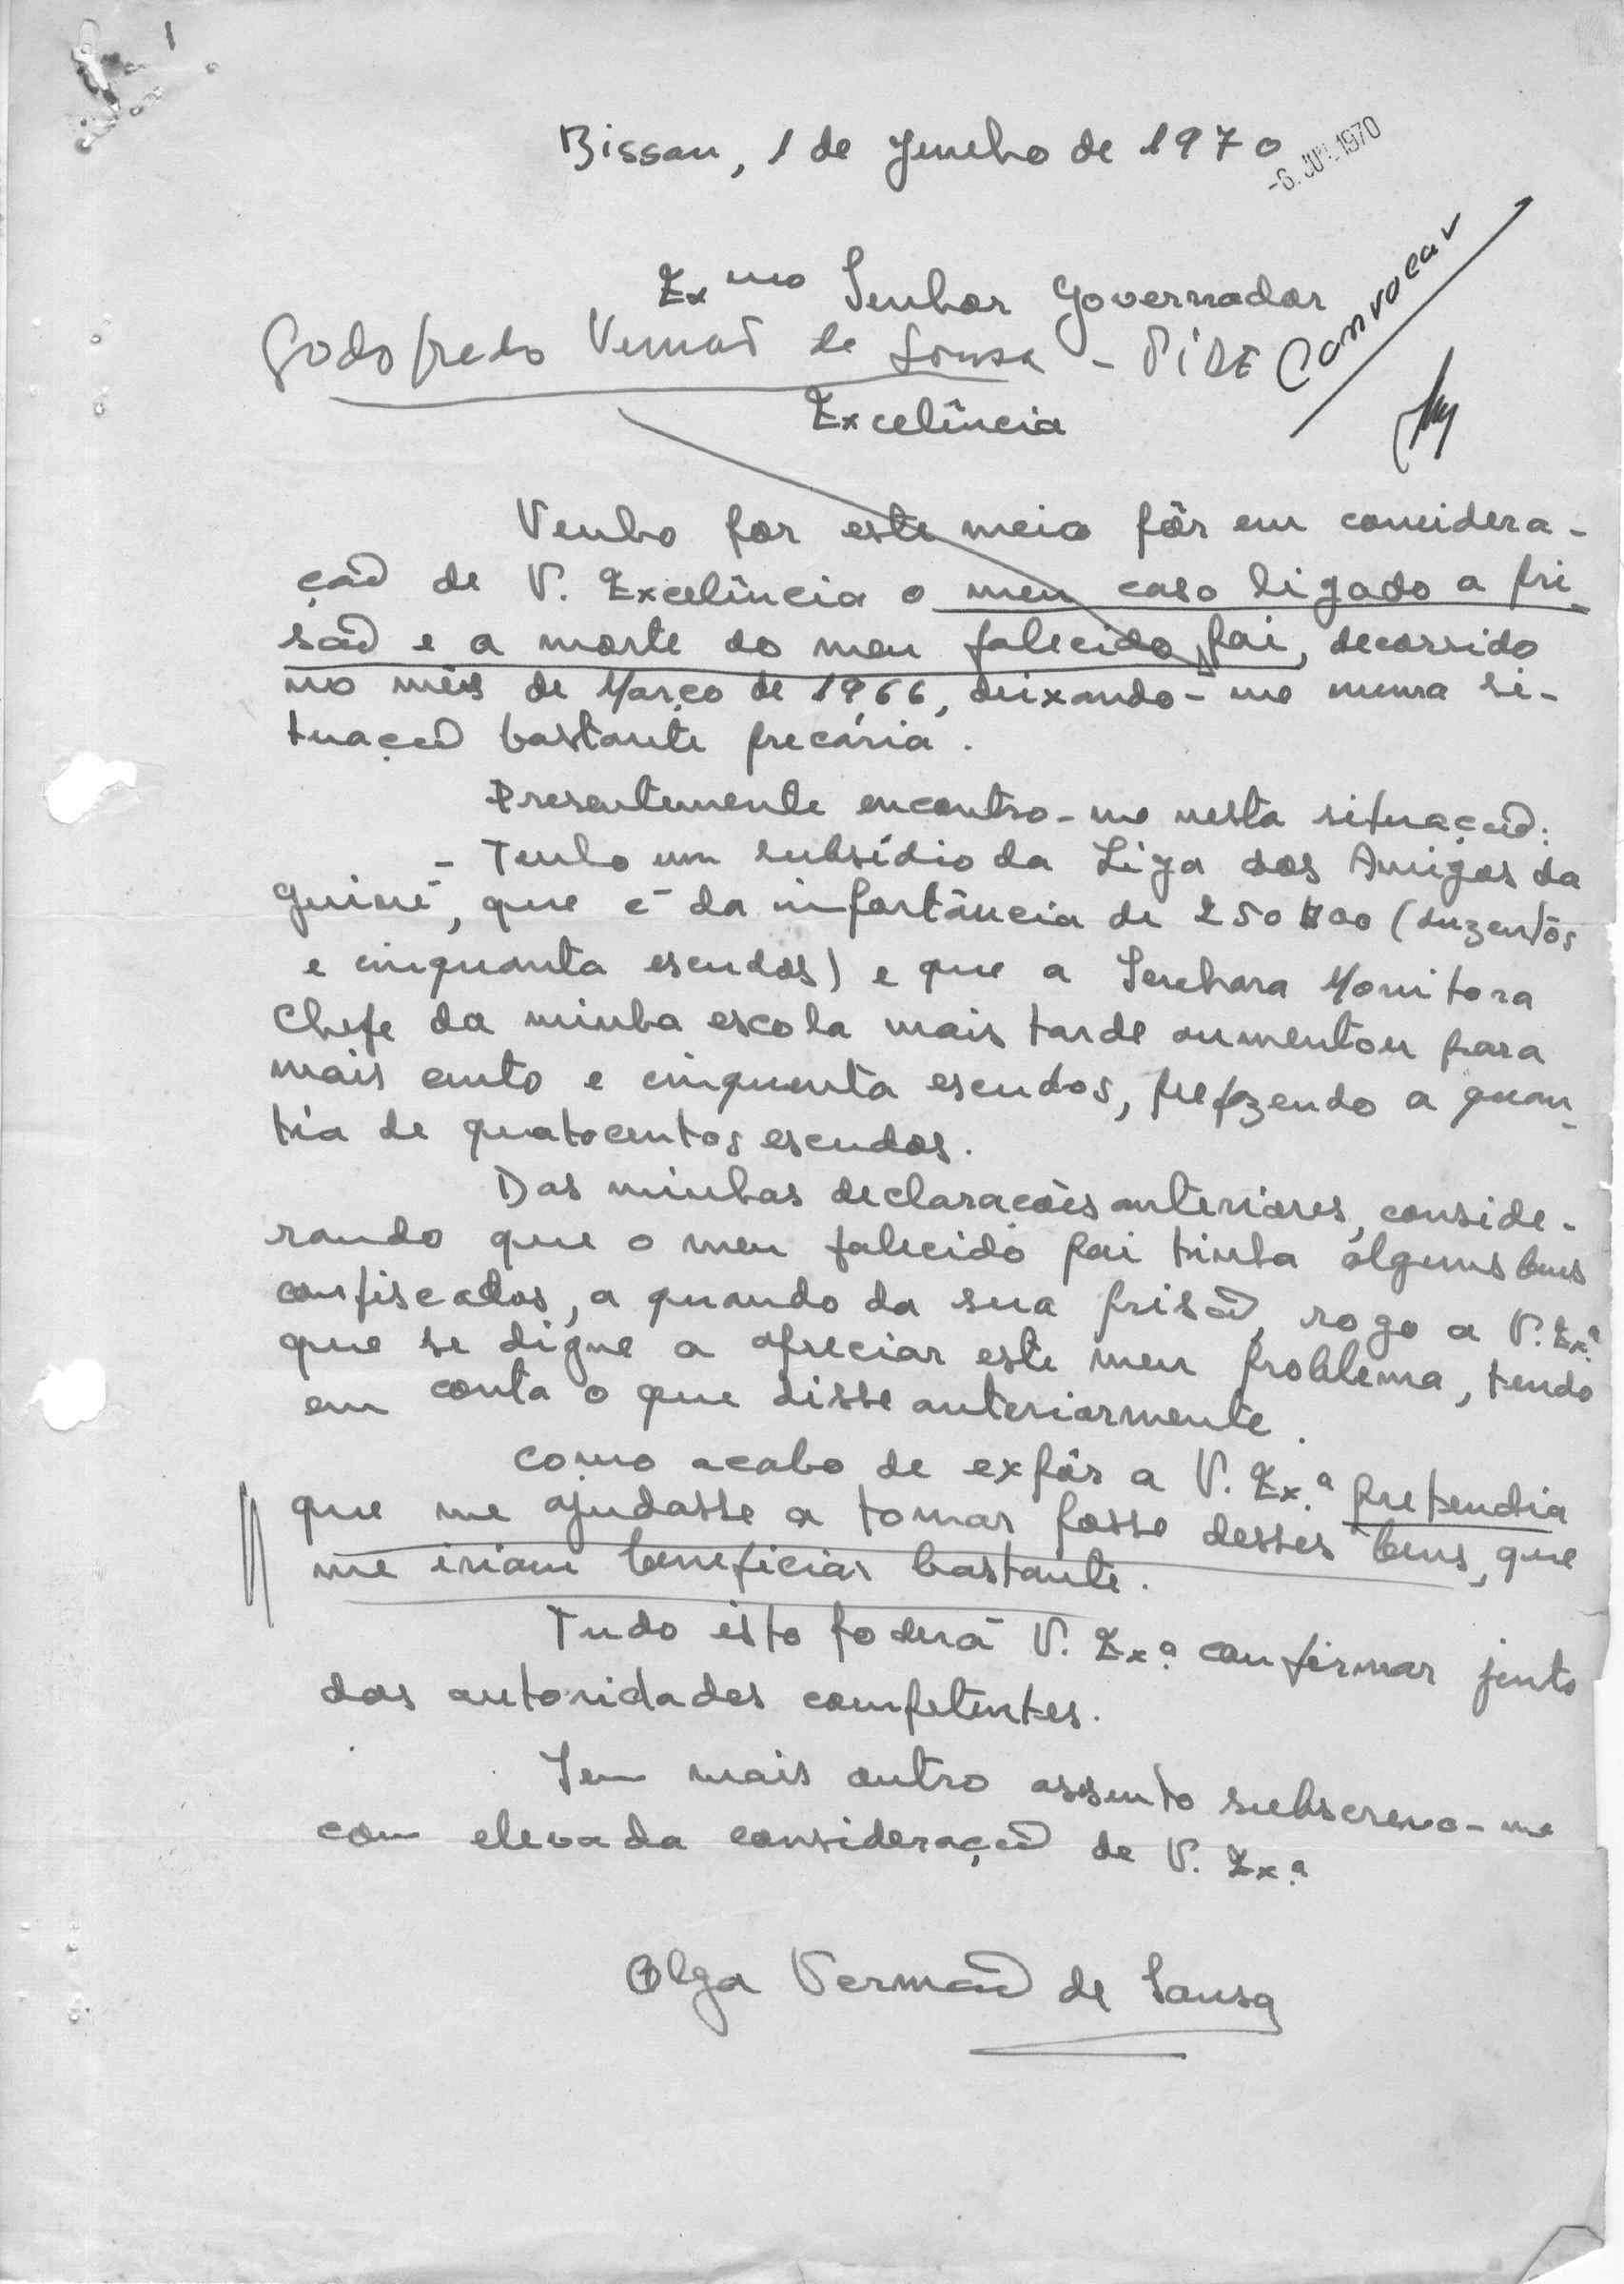 1
Bissau, 1 de Junho de 1970
-6. JUN. 1970
Exmo Senhor Governador
Convocar
Godofredo Vermão de Sousa - PIDE
Excelência
Venho por este meio pôr em considera-
ção de V. Excelência o meu caso ligado a pri-
são e a morte do meu falecido pai, decorrido
no mês de Março de 1966, deixando-me numa si-
tuação bastante precária.
Presentemente encontro-me nesta situação:
- Tenho um subsídio da Liga dos Amigos da
Guiné, que é da importância de 250$00 (duzentos
e cinquanta escudos) e que a Senhora Monitora
Chefe da minha escola mais tarde aumentou para
mais cento e cinquenta escudos, prefazendo a quan-
tia de quatocentos escudos.
Das minhas declarações anteriores, conside-
rando que o meu falecido pai tinha alguns bens
confiscados, a quando da sua prisão, rogo a V. Ex.ª
que se digne a apreciar este meu problema, tendo
em conta o que disse anteriormente.
Como acabo de expôr a V. Ex.ª pretendia
que me ajudasse a tomar posse desses bens, que
me iriam beneficiar bastante.
Tudo isto poderá V. Ex.ª confirmar junto
das autoridades competentes.
Sem mais outro assunto subscrevo-me
com elevada consideração de V. Ex.ª
Olga Vermão de Sousa